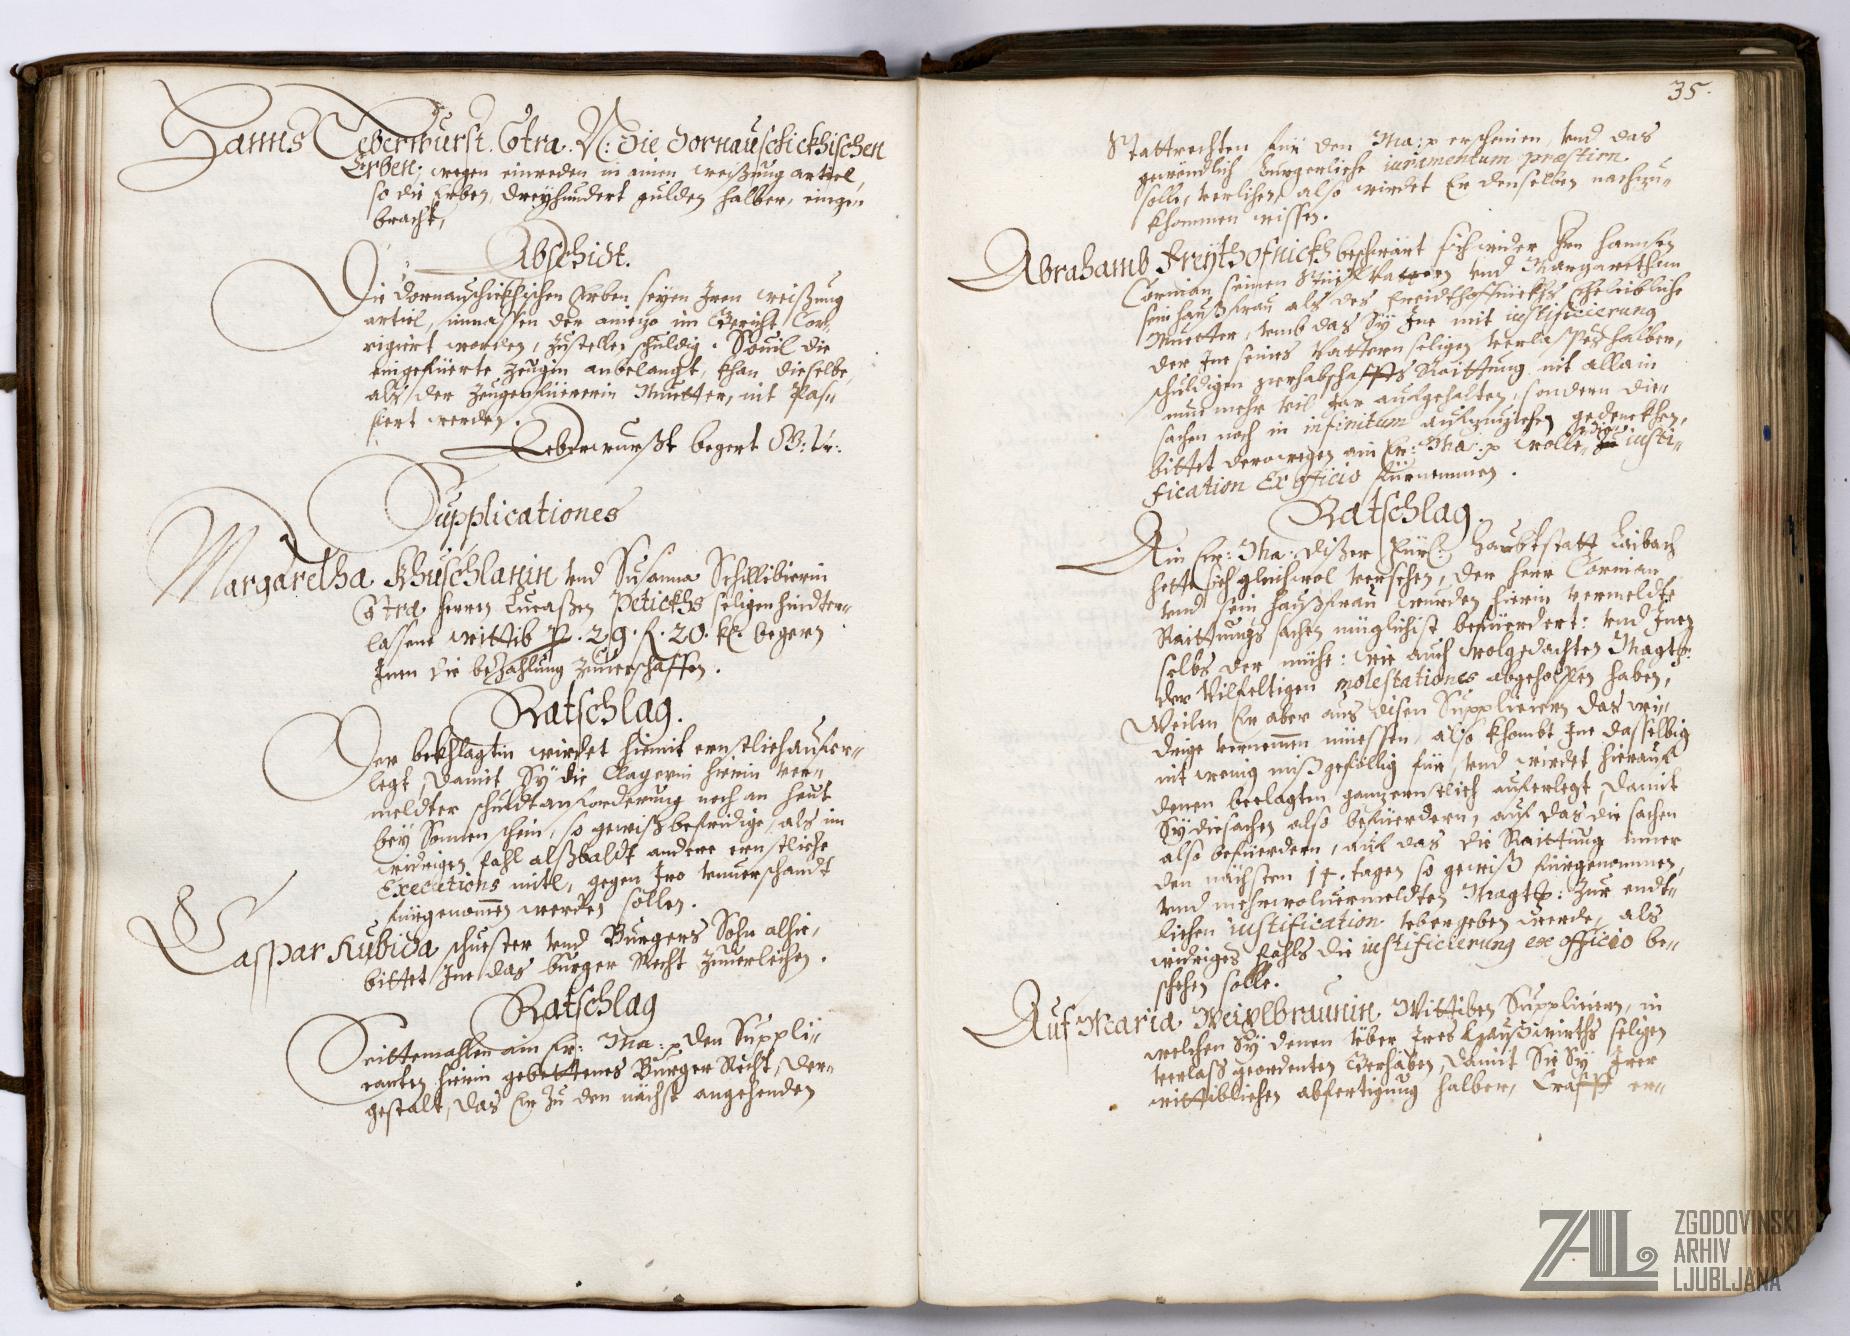 Hanns Leberwurst Contra N: die Dornauschickhischen
Erben, wegen einreden in ainen weißung articl,
so die Erben, dreyhundert gulden halber, einge-
bracht,
Abschidt.
Die Dornauschickhischen Erben seyen Iren weißung
articl, inmassen der aniezo im Gericht Cor-
rigiert worden, zustellen schuldig. Souil die
eingefüerte Zeugin anbelangt, khan dieselbe,
als der Zeugenfüererin Muetter, nit Pas-
siert werden.
Leberwurßt begert W: Ur:
Supplicationes
Margaretha Khuschlanin vnd Susanna Schillibierin
Contra herrn Lucaßen Petickhs seligen hindter-
lassene wittib P. 29. f. 20. kr. begern
Inen die bezahlung zuuerschaffen.
Ratschlag.
Der bekhlagtin wirdet hiemit ernstlich aufer-
legt, damit Sÿ die Clagerin hierin ver-
meldter schuldtanforderung noch an heut
beÿ Sonnen schein, so gewiß befridige, als im
widrigen fahl alßbaldt andere ernstliche
Executions mitl, gegen Iro vnuerschandt
fürgenomen werden sollen.
Caspar Kubida schuester vnd Burgers Sohn alhie,
bittet Ine das burger Recht zuuerleihen.
Ratschlag
Seittemahlen ain Er: Ma: den Suppli-
canten hierin gebettenes Burger Recht, der-
gestalt, das Er zu den nächst angehenden
35.
Stattrechten für den Ma: erscheinen, vnd das
gewöndlich burgerliche iuramentum præstirn
solle, verlihen, also wirdet Er denselben nachzu-
khommen wissen.
Abrahamb Freythofnickh beschwärt sich wider Hrn Hannsen
Corman seinen Stiefvattern vnd Margarethan
sein haußfrau als des Freidthoffnickhs eheleibliche
Muetter, vmb das Sÿ Ine mit iustificierung
der Ine seines Vattern seligen verlasses halber,
schuldigen gerhabschaffts Raittung nit allain
nunmehr vil Jar aufgehalten, sondern die
sachen noch in infinitum aufzuziehen gedenckhen,
bittet derowegen ain Er: Ma: wolle die iusti-
fication Ex officio fürnemmen.
Ratschlag
Ain Er: Ma: dißer Fürl: Haubtstatt Laibach
hette sich gleichwol versehen, der herr Corman
vnd sein haußfrau wurden hierin vermeldte
Raittungs sachen müglichist befüerdert: vnd Inen
selbs der mühe: wie auch wolgedachten Magt:
der vilfeltigen molestationes abgeholffen haben,
Weilen Er aber aus disen Suppliciern das wi-
drige vernemmen müessen, also khombt Ine dasselbig
nit wenig mißgefällig für, vnd wirdet hierauf
denen beclagten ganz ernstlich auferlegt, damit
Sÿ die sachen also befüerdern, auf das die sachen
also befüerdern, auf das die Raittung inner
den nächsten 14. tagen so gewiß fürgenommen,
vnd mehrwoluermeldten Magt: zur endt-
lichen iustification vbergeben werde, als
widriges fahls die iustificierung ex officio be-
schehen solle.
Auf Maria Weixlbraunin Wittiben Suppliciern, in
welchen Sÿ denen über Ires Haußwirths seligen
verlass geordenten Gerhaben, damit Sie Sÿ Irer
wittiblichen abfertigung halber, Crafft er-
ZAL
ZGODOVINSKI
ARHIV
LJUBLJANA